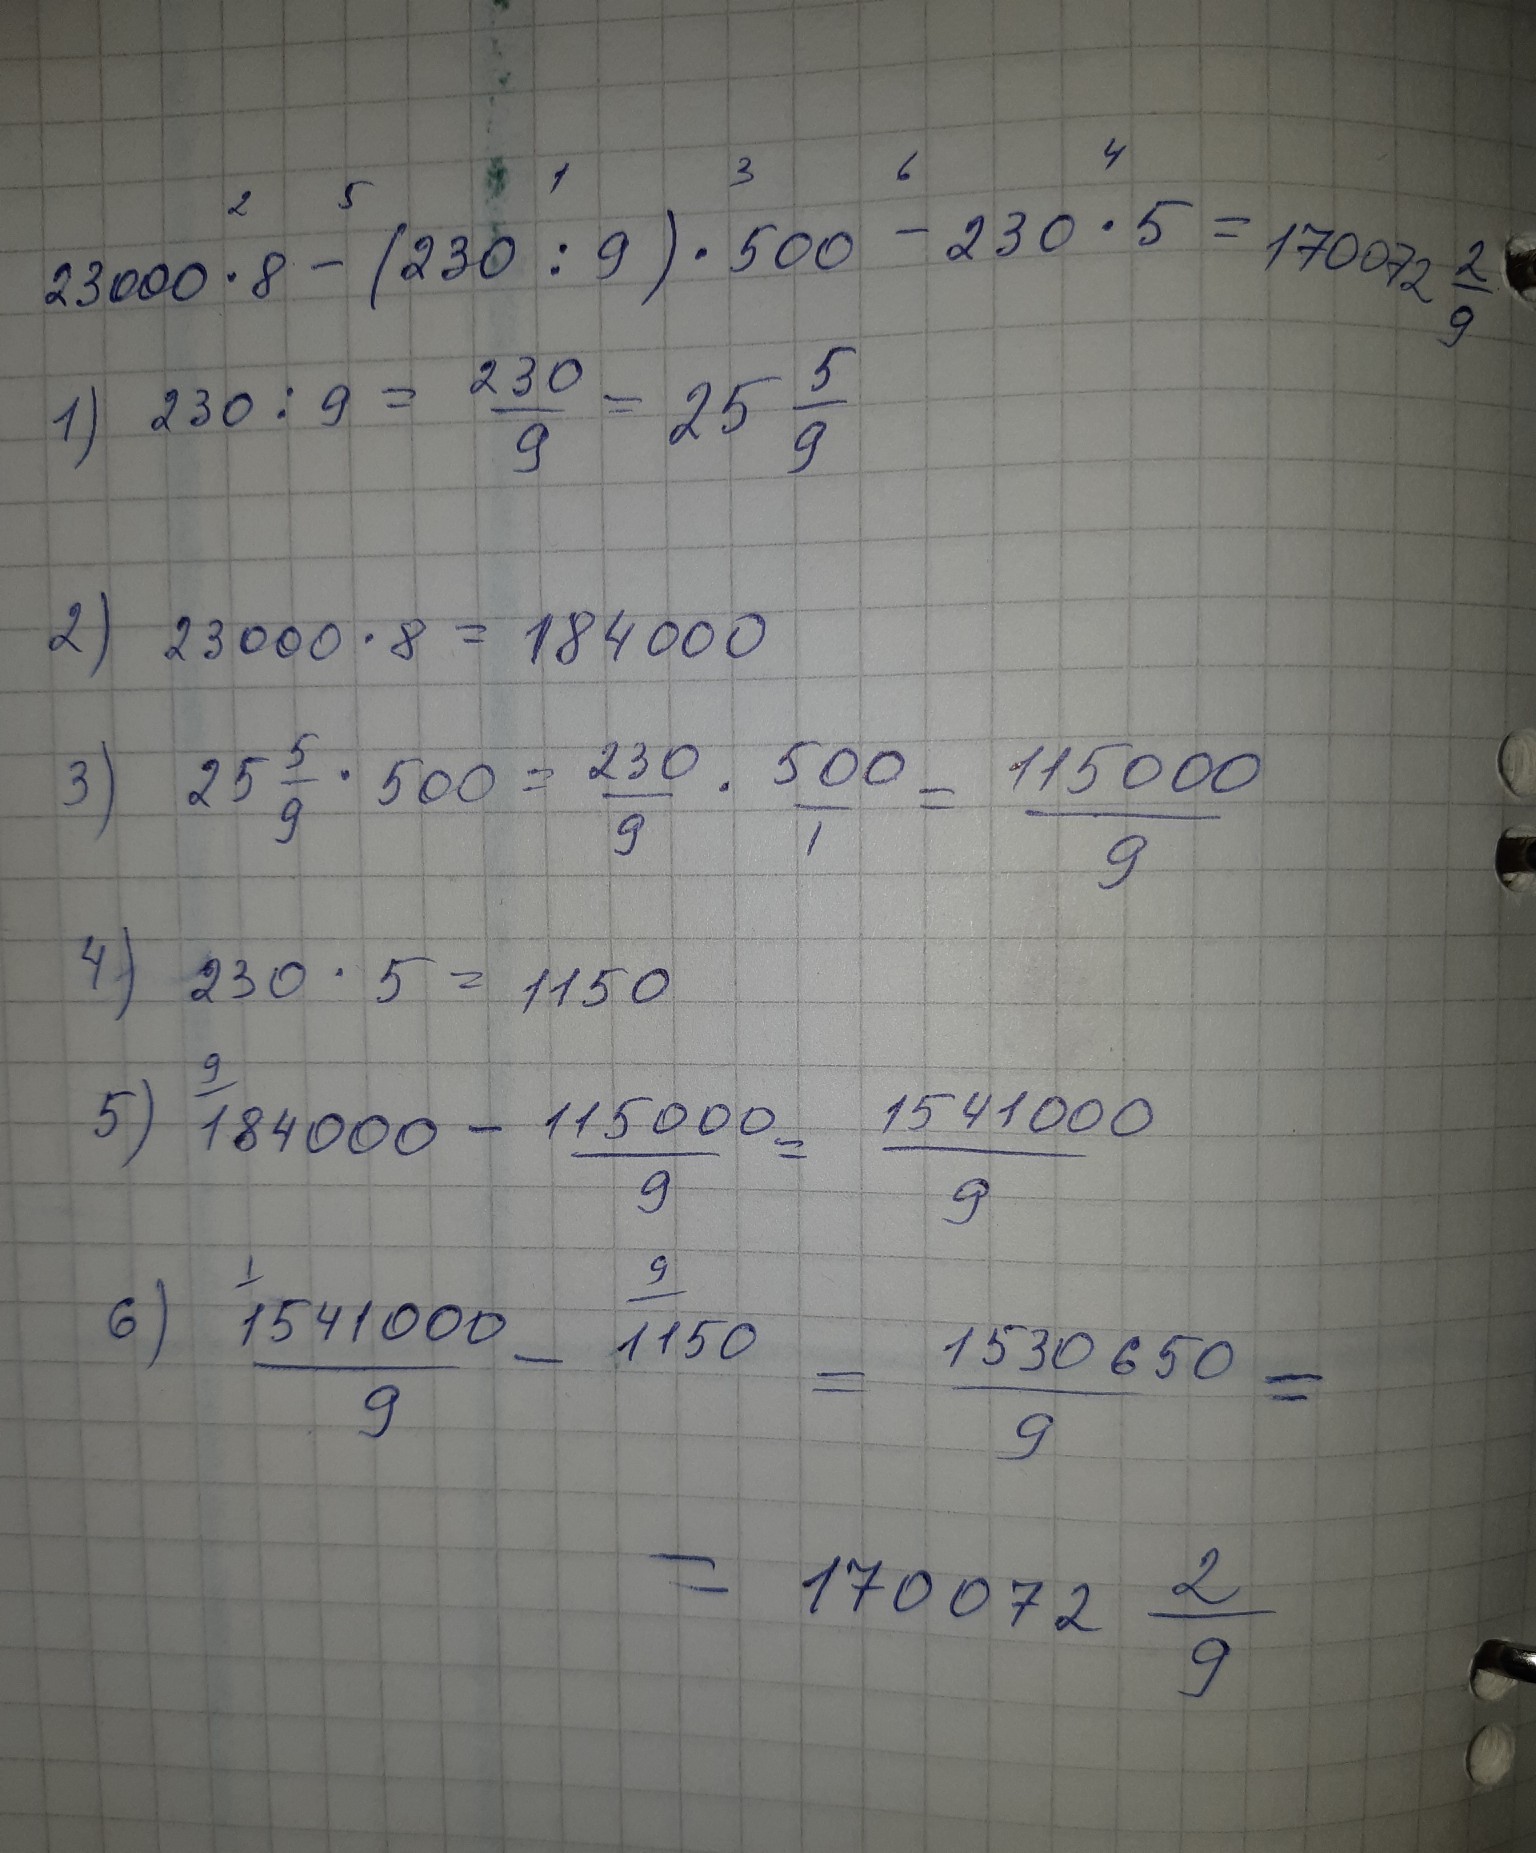 2 5 1 3 6 4
23000·8-(230:9)·500-230·5=170072 2/9
1) 230:9= 230/9 = 25 5/9
2) 23000·8=184000
3) 25 5/9·500= 230/9 · 500/1 = 115000/9
4) 230·5=1150
5) 9/ 184000 - 115000/9 = 1541000/9
6) 1/ 1541000/9 - 9/ 1150 = 1530650/9 =
= 170072 2/9